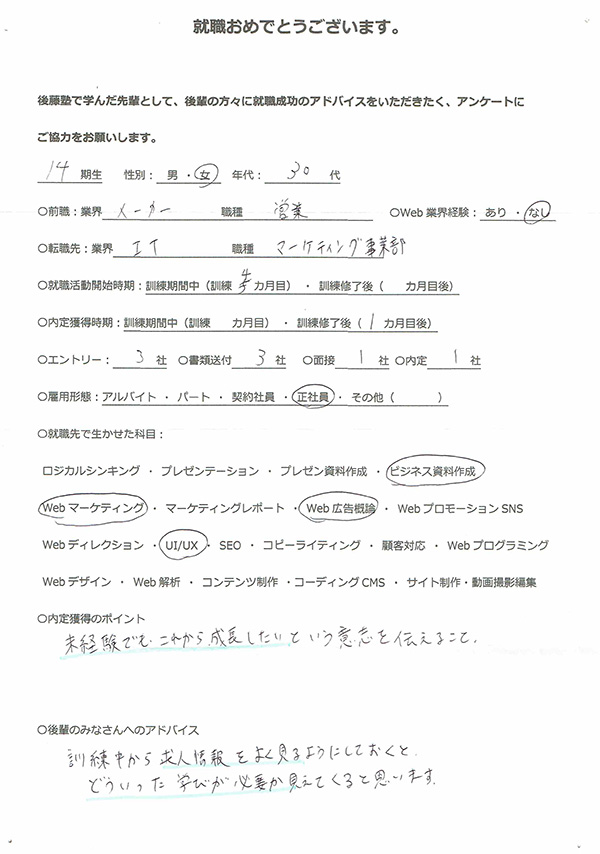 就職おめでとうございます。
後藤塾で学んだ先輩として、後輩の方々に就職成功のアドバイスをいただきたく、アンケートに
ご協力をお願いします。
14 期生 性別: 男 ・ 女 年代: 30 代
○前職:業界 メーカー 職種 営業 ○Web 業界経験: あり ・ なし
○転職先:業界 IT 職種 マーケティング事業部
○就職活動開始時期:訓練期間中（訓練 カ月目）・ 訓練修了後（ カ月目後）
○内定獲得時期:訓練期間中（訓練 カ月目）・ 訓練修了後（ 1 カ月目後）
○エントリー: 3 社 ○書類送付 3 社 ○面接 1 社 ○内定 1 社
○雇用形態:アルバイト ・ パート ・ 契約社員 ・ 正社員 ・ その他（ ）
○就職先で生かせた科目:
ロジカルシンキング ・ プレゼンテーション ・ プレゼン資料作成 ・ ビジネス資料作成
Web マーケティング ・ マーケティングレポート ・ Web 広告概論 ・ Web プロモーション SNS
Web ディレクション ・ UI/UX ・ SEO ・ コピーライティング ・ 顧客対応 ・ Web プログラミング
Web デザイン ・ Web 解析 ・ コンテンツ制作 ・コーディング CMS ・ サイト制作・動画撮影編集
○内定獲得のポイント
未経験でも これから成長したいという意志を伝えること。
○後輩のみなさんへのアドバイス
訓練中から求人情報をよく見るようにしておくと、
どういった学びが必要か見えてくると思います。